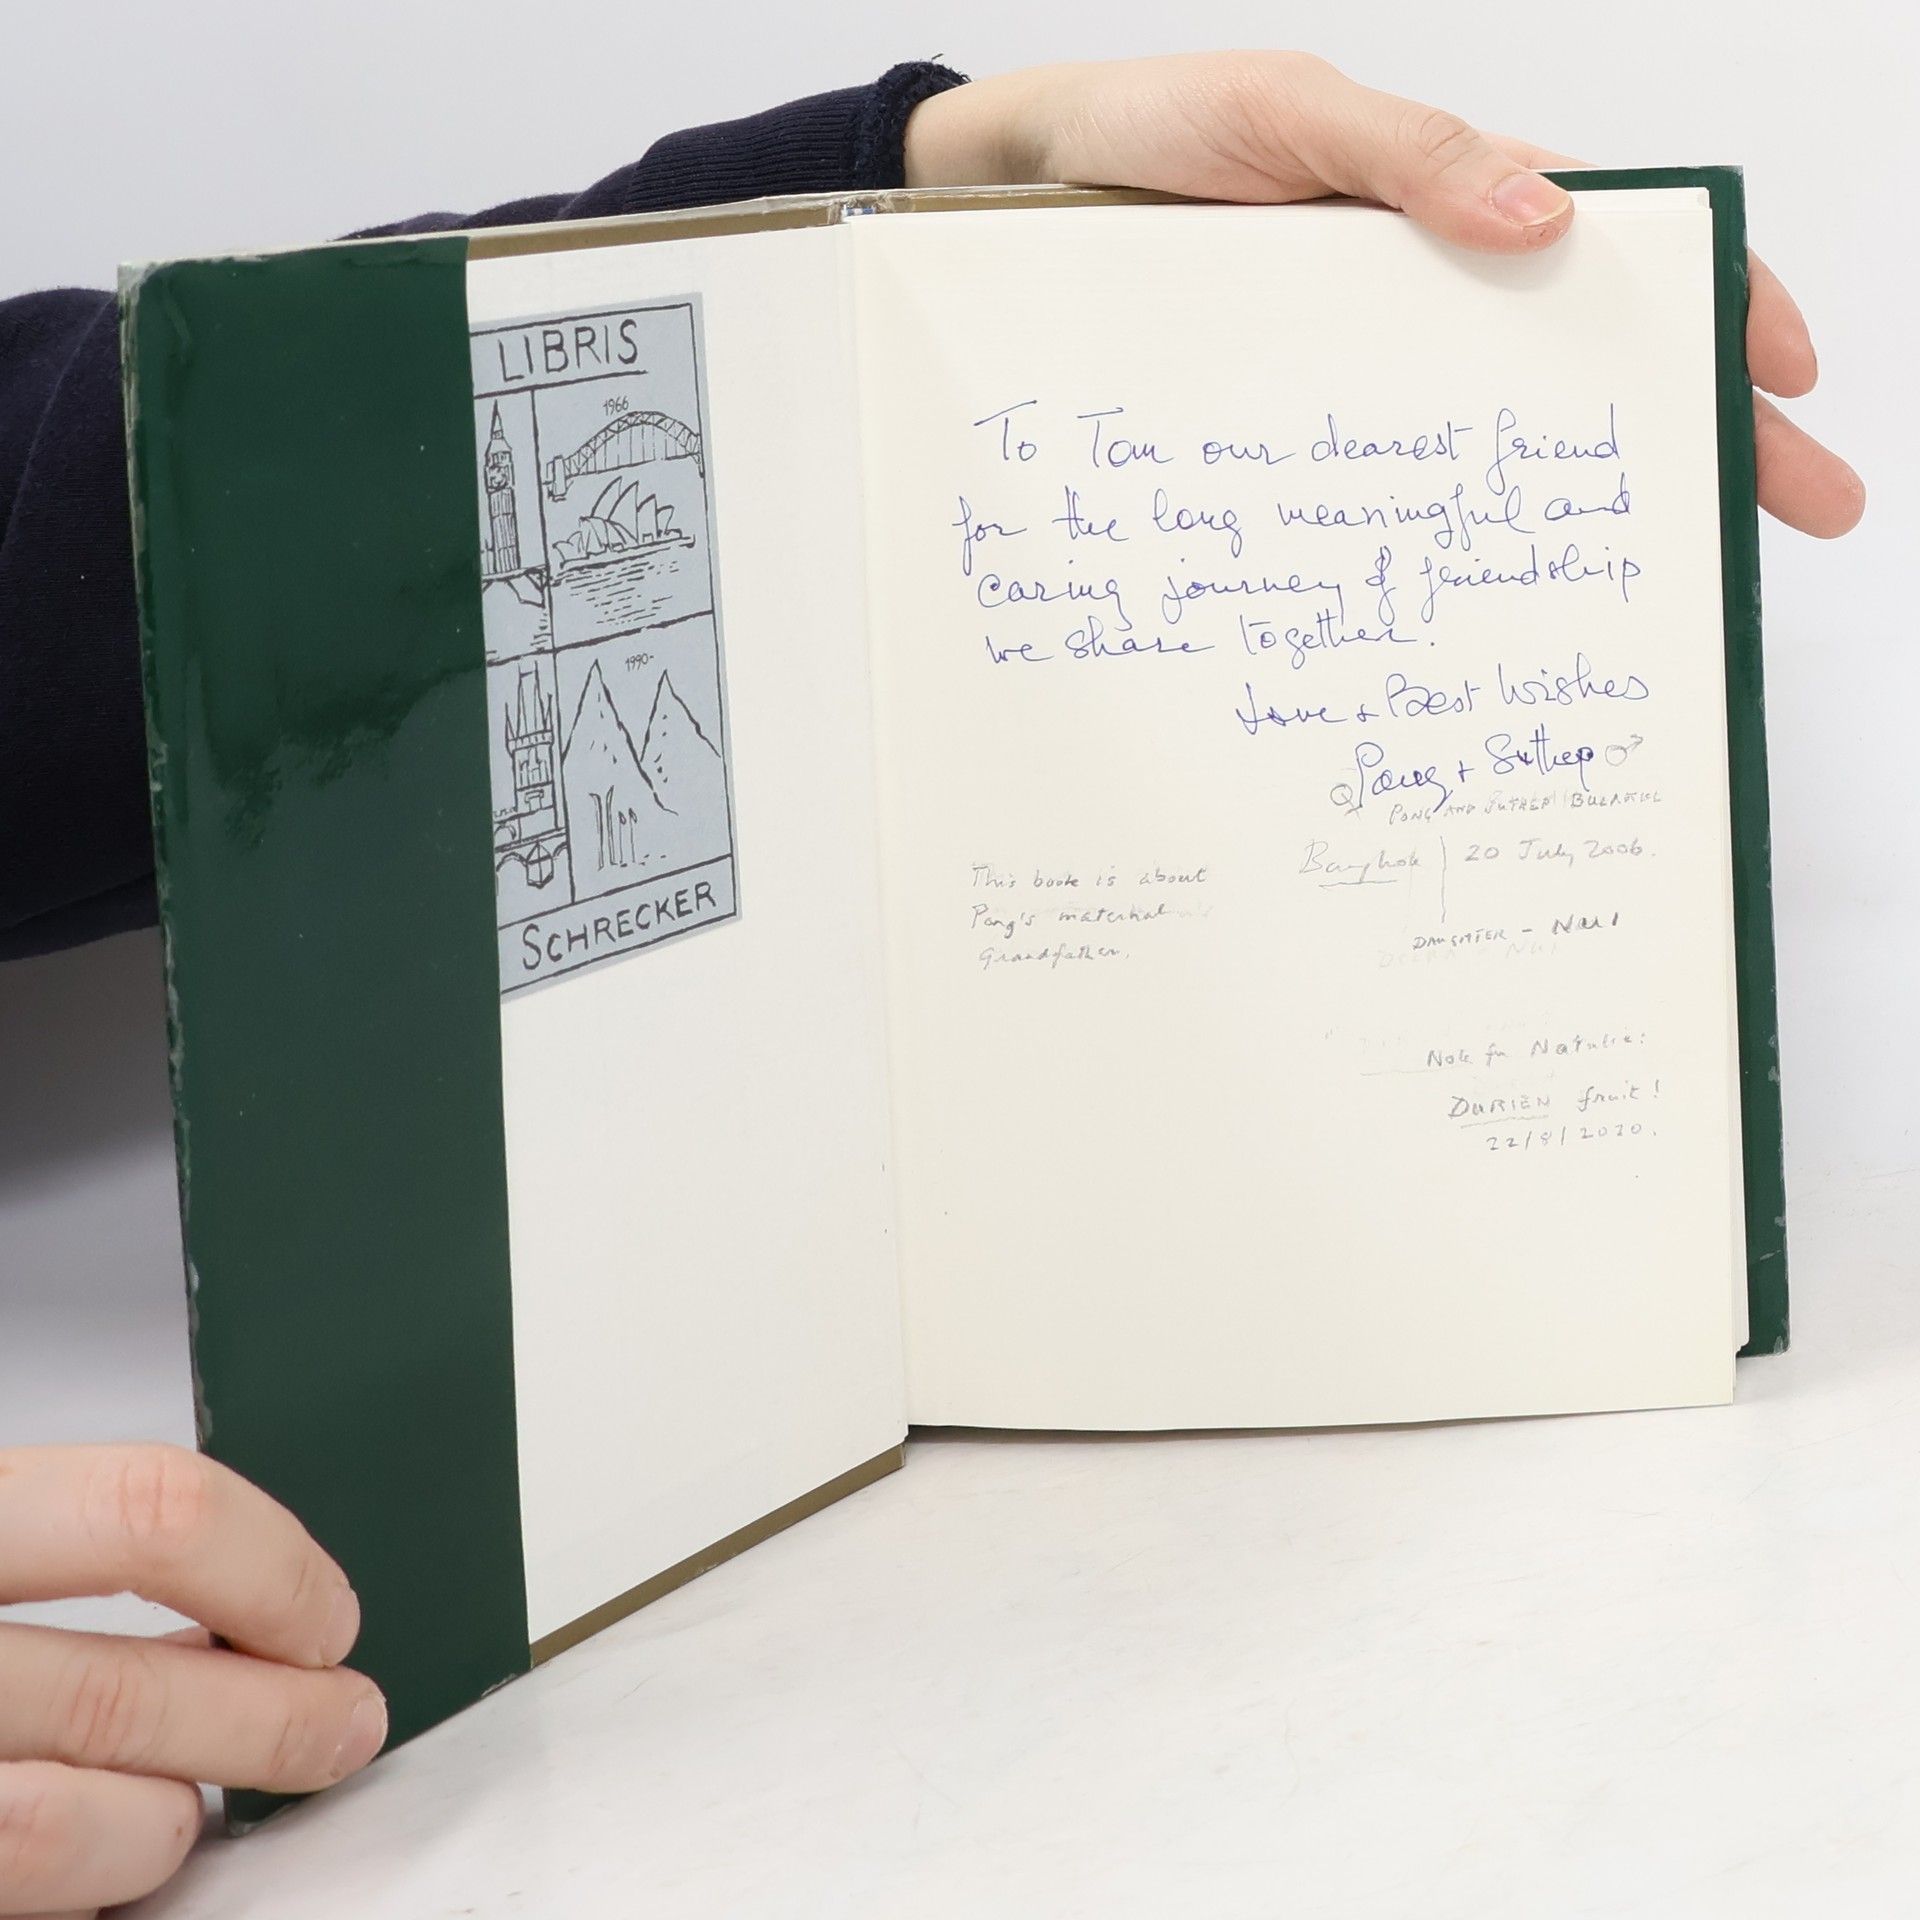 LIBRIS
1966
1990-
SCHRECKER
To Tom our dearest friend
for the long meaningful and
caring journey of friendship
we share together.
Love & Best Wishes
Pong + Suthep
PONG AND SUTHEP
Bangkok 20 July 2006.
This book is about
Pong's maternal
Grandfather.
DAUGHTER - NUI
Note for Natalie:
DURIEN fruit!
22/8/2020.